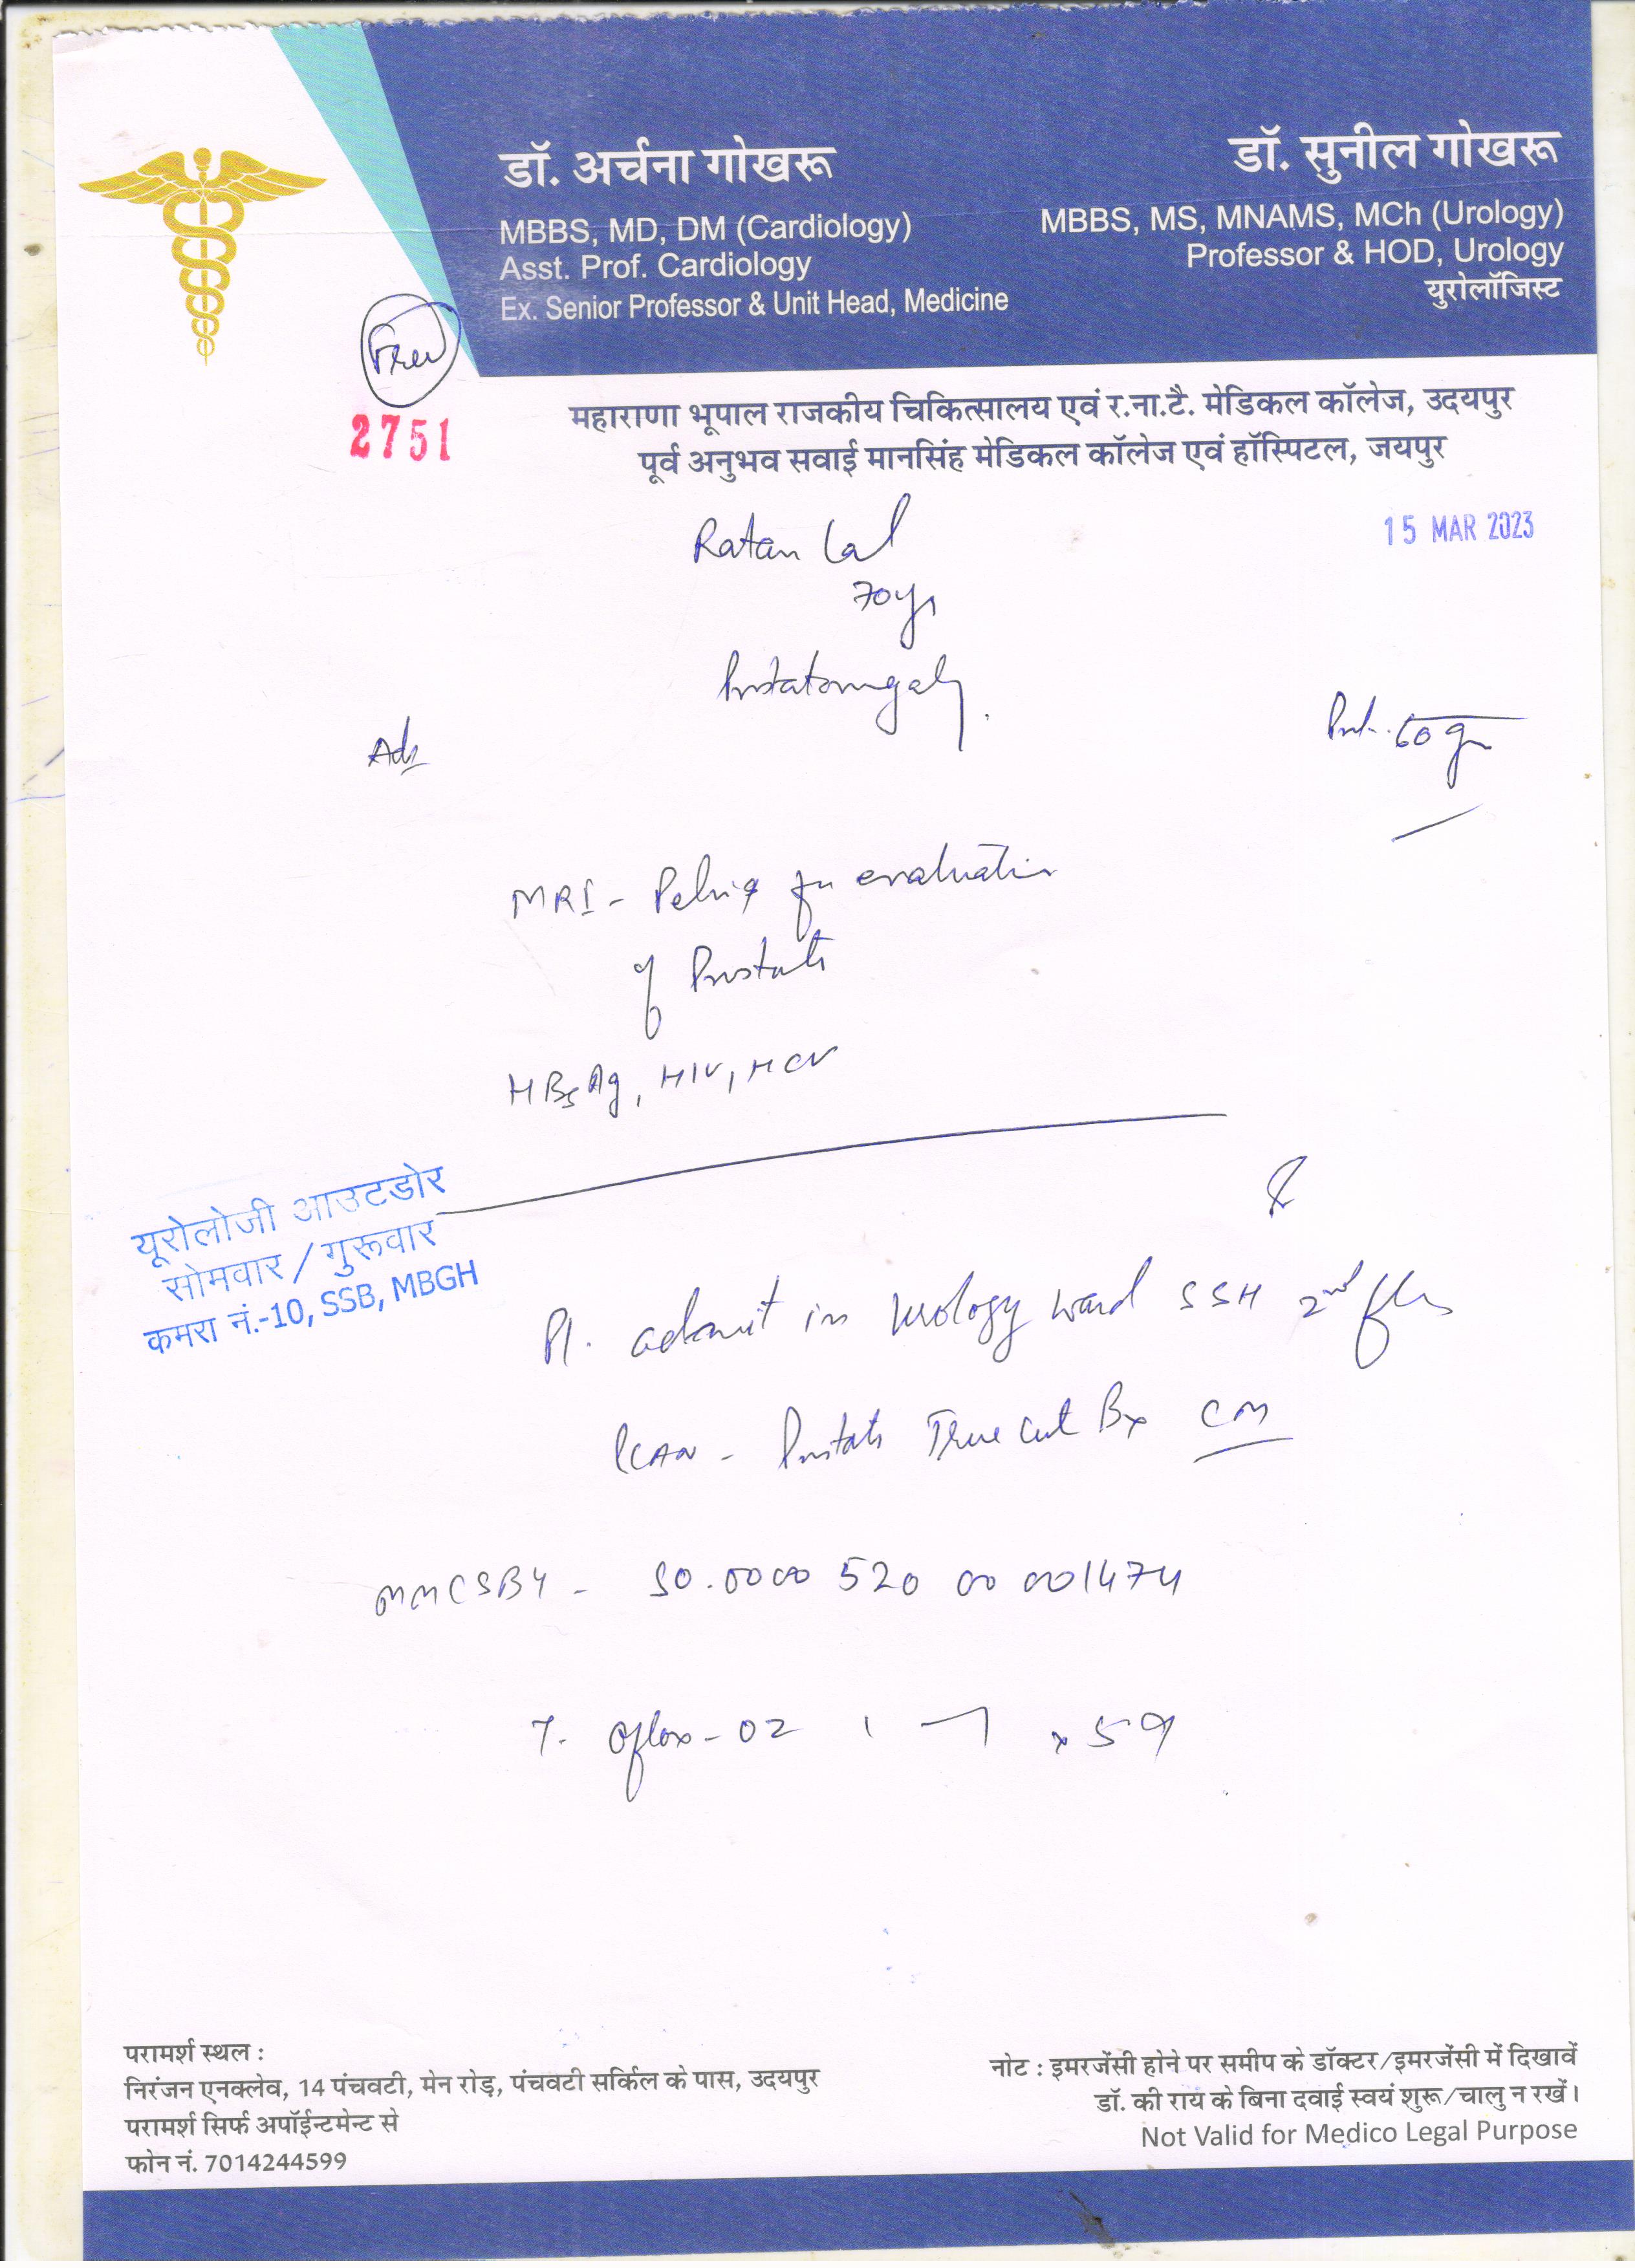 डॉ. अर्चना गोखरू
MBBS, MD, DM (Cardiology)
Asst. Prof. Cardiology
Ex. Senior Professor & Unit Head, Medicine
डॉ. सुनील गोखरू
MBBS, MS, MNAMS, MCh (Urology)
Professor & HOD, Urology
युरोलॉजिस्ट
Free
2751
महाराणा भूपाल राजकीय चिकित्सालय एवं र.ना.टै. मेडिकल कॉलेज, उदयपुर
पूर्व अनुभव सवाई मानसिंह मेडिकल कॉलेज एवं हॉस्पिटल, जयपुर
15 MAR 2023
Ratan Lal
70yrs
Prostatomegaly.
Adv
60 gm
MRI - Pelvis for evaluation
of Prostate
HBsAg, HIV, HCV
यूरोलोजी आउटडोर
सोमवार/गुरूवार
कमरा नं.-10, SSB, MBGH
Pl. admit in Urology ward SSH 2nd floor
PLAN - Prostate True cut Bx CM
MMCSBY -
T. Oflox-02 1 - 1 x 5d
परामर्श स्थल :
निरंजन एनक्लेव, 14 पंचवटी, मेन रोड़, पंचवटी सर्किल के पास, उदयपुर
परामर्श सिर्फ अपॉईन्टमेन्ट से
फोन नं. 7014244599
नोट : इमरजेंसी होने पर समीप के डॉक्टर/इमरजेंसी में दिखावें
डॉ. की राय के बिना दवाई स्वयं शुरू/चालु न रखें।
Not Valid for Medico Legal Purpose